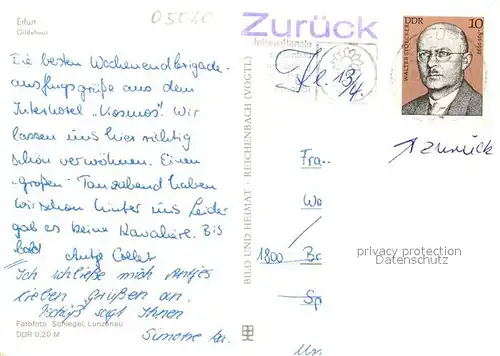 05020
Zurück
Erfurt
Gildehaus
DDR 10
WALTER STOECKER
1891-1939
Die besten Wochenendbrigade-
ausflugsgrüße aus dem
Interhotel „Kosmos". Wir
lassen uns hier richtig
schön verwöhnen. Einen
„großen" Tanzabend haben
wir schon hinter uns. Leider
gab es keine Kavaliere. Bis
bald Antje
Ich schließe mich Antjes
lieben Grüßen an.
Tschüß sagt Ihnen
Simone
Farbfoto: Schlegel, Lunzenau
DDR 0,20 M
BILD UND HEIMAT · REICHENBACH (VOGTL)
zurück
Fra
Wo
1800 Br
Sp
privacy protection
Datenschutz